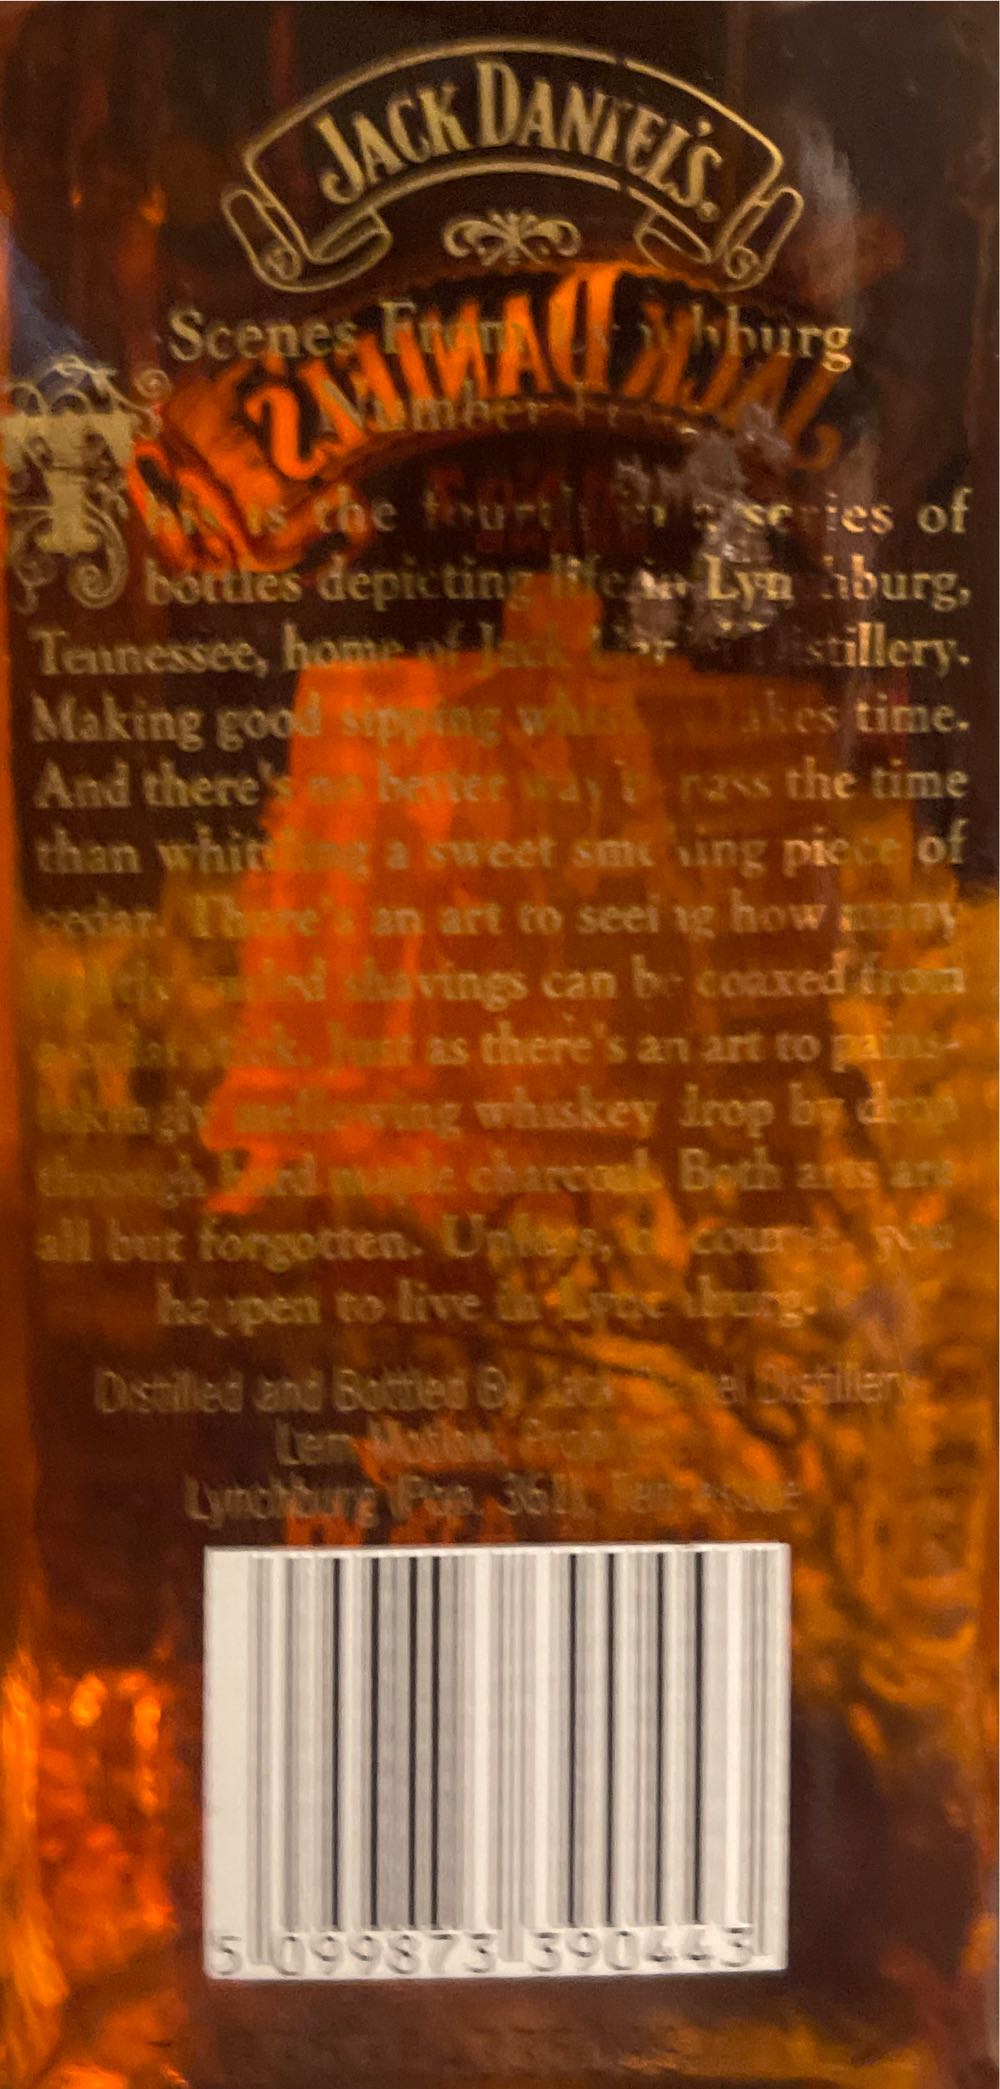 JACK DANIEL'S
Scenes From Lynchburg
Number Four
This is the fourth in a series of
bottles depicting life in Lynchburg,
Tennessee, home of Jack Daniel Distillery.
Making good sipping whiskey takes time.
And there's no better way to pass the time
than whittling a sweet smelling piece of
cedar. There's an art to seeing how many
tightly curled shavings can be coaxed from
a cedar stick. Just as there's an art to pains-
takingly mellowing whiskey drop by drop
through hard maple charcoal. Both arts are
all but forgotten. Unless, of course, you
happen to live in Lynchburg.
Distilled and Bottled By Jack Daniel Distillery
Lem Motlow, Prop
Lynchburg (Pop. 361), Tennessee
5 099873 390443
JACK DANIEL'S